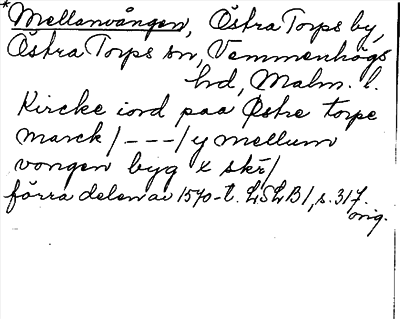 *Mellanvången, Östra Torps by,
Östra Torps sn, Vemmenhögs
hd, Malm. l.
Kircke iord paa Østre torpe
marck/---/y mellum
vongen byg x skr̄/
förra delen av 1570-t. LSLB1, s. 317.
orig.